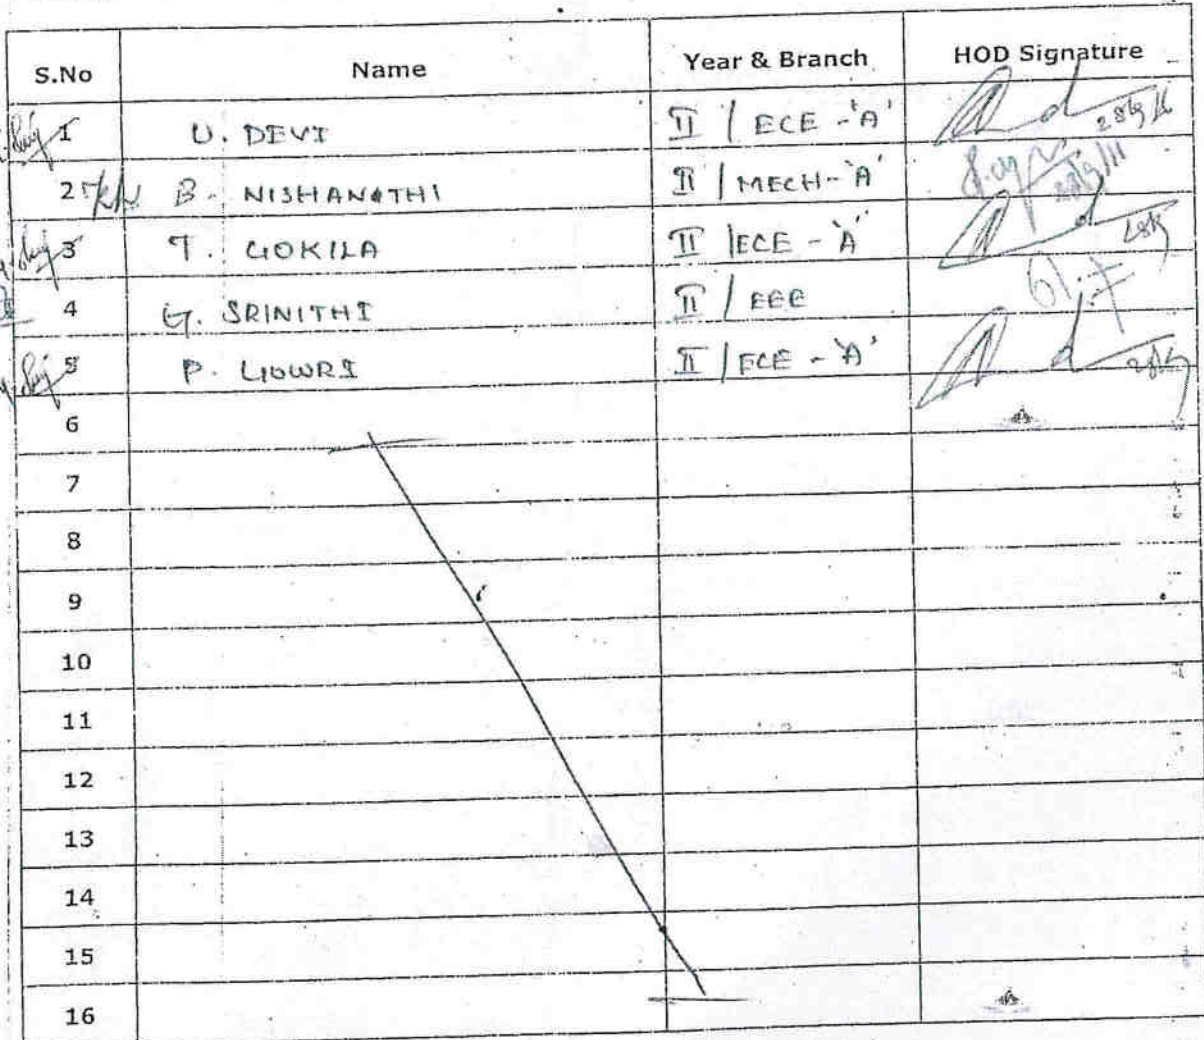 S.No Name Year & Branch HOD Signature
1 U. DEVI II / ECE - 'A'
2 B. NISHANATHI II / MECH - 'A'
3 T. GOKILA II / ECE - 'A'
4 G. SRINITHI II / EEE
5 P. GOWRI II / ECE - 'A'
6
7
8
9
10
11
12
13
14
15
16